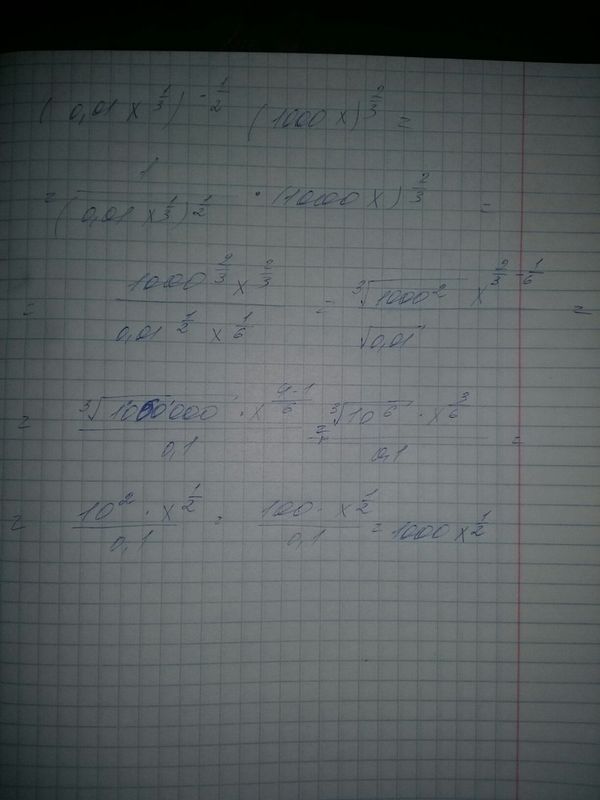 (0,01 x^{1/3})^{-1/2} (1000 x)^{2/3} =
= 1/(0,01 x^{1/3})^{1/2} · (1000 x)^{2/3} =
= (1000^{2/3} x^{2/3})/(0,01^{1/2} x^{1/6}) = (∛1000^2 x^{2/3 - 1/6})/√0,01 =
= (∛1000000 · x^{(4-1)/6})/0,1 = (∛10^6 · x^{3/6})/0,1 =
= (10^2 · x^{1/2})/0,1 = (100 · x^{1/2})/0,1 = 1000 x^{1/2}